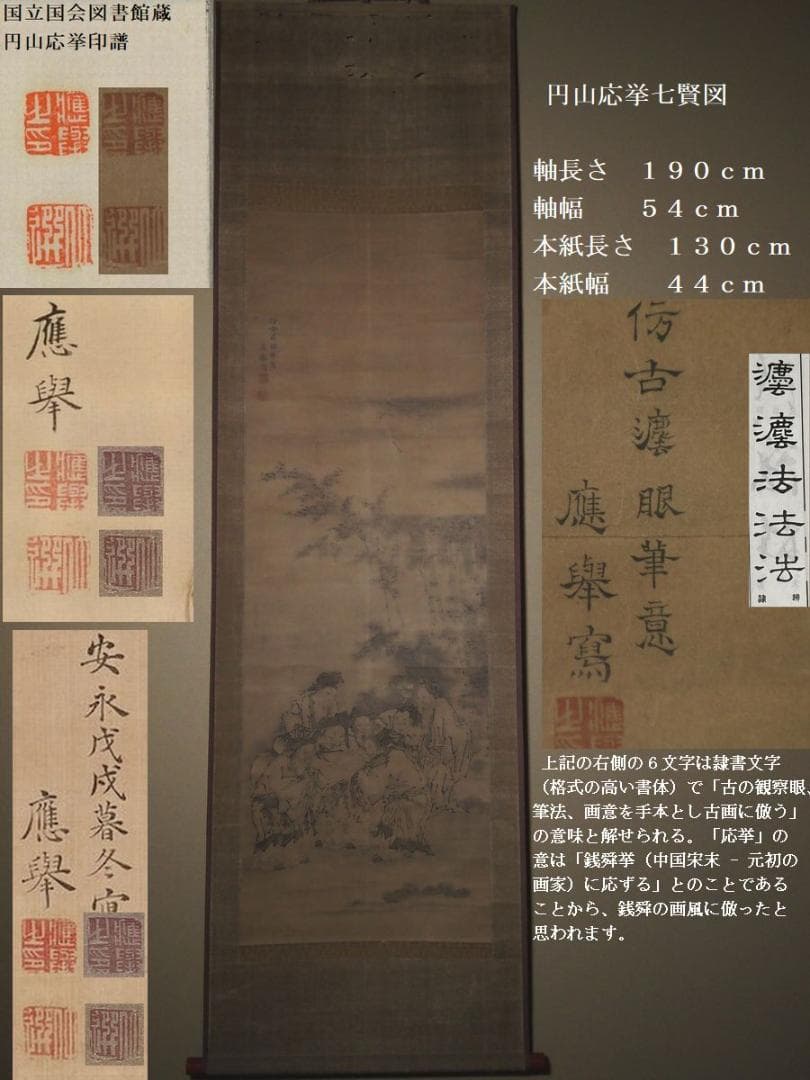 国立国会図書館蔵
円山応挙印譜
應舉
安永戊戌暮冬寫
應舉
円山応挙七賢図
軸長さ　１９０ｃｍ
軸幅　　５４ｃｍ
本紙長さ　１３０ｃｍ
本紙幅　　４４ｃｍ
仿古灋眼筆意
應舉寫
灋灋法法法
上記の右側の６文字は隷書文字
（格式の高い書体）で「古の観察眼、
筆法、画意を手本とし古画に倣う」
の意味と解せられる。「応挙」の
意は「銭舜挙（中国宋末 － 元初の
画家）に応ずる」とのことである
ことから、銭舜の画風に倣ったと
思われます。